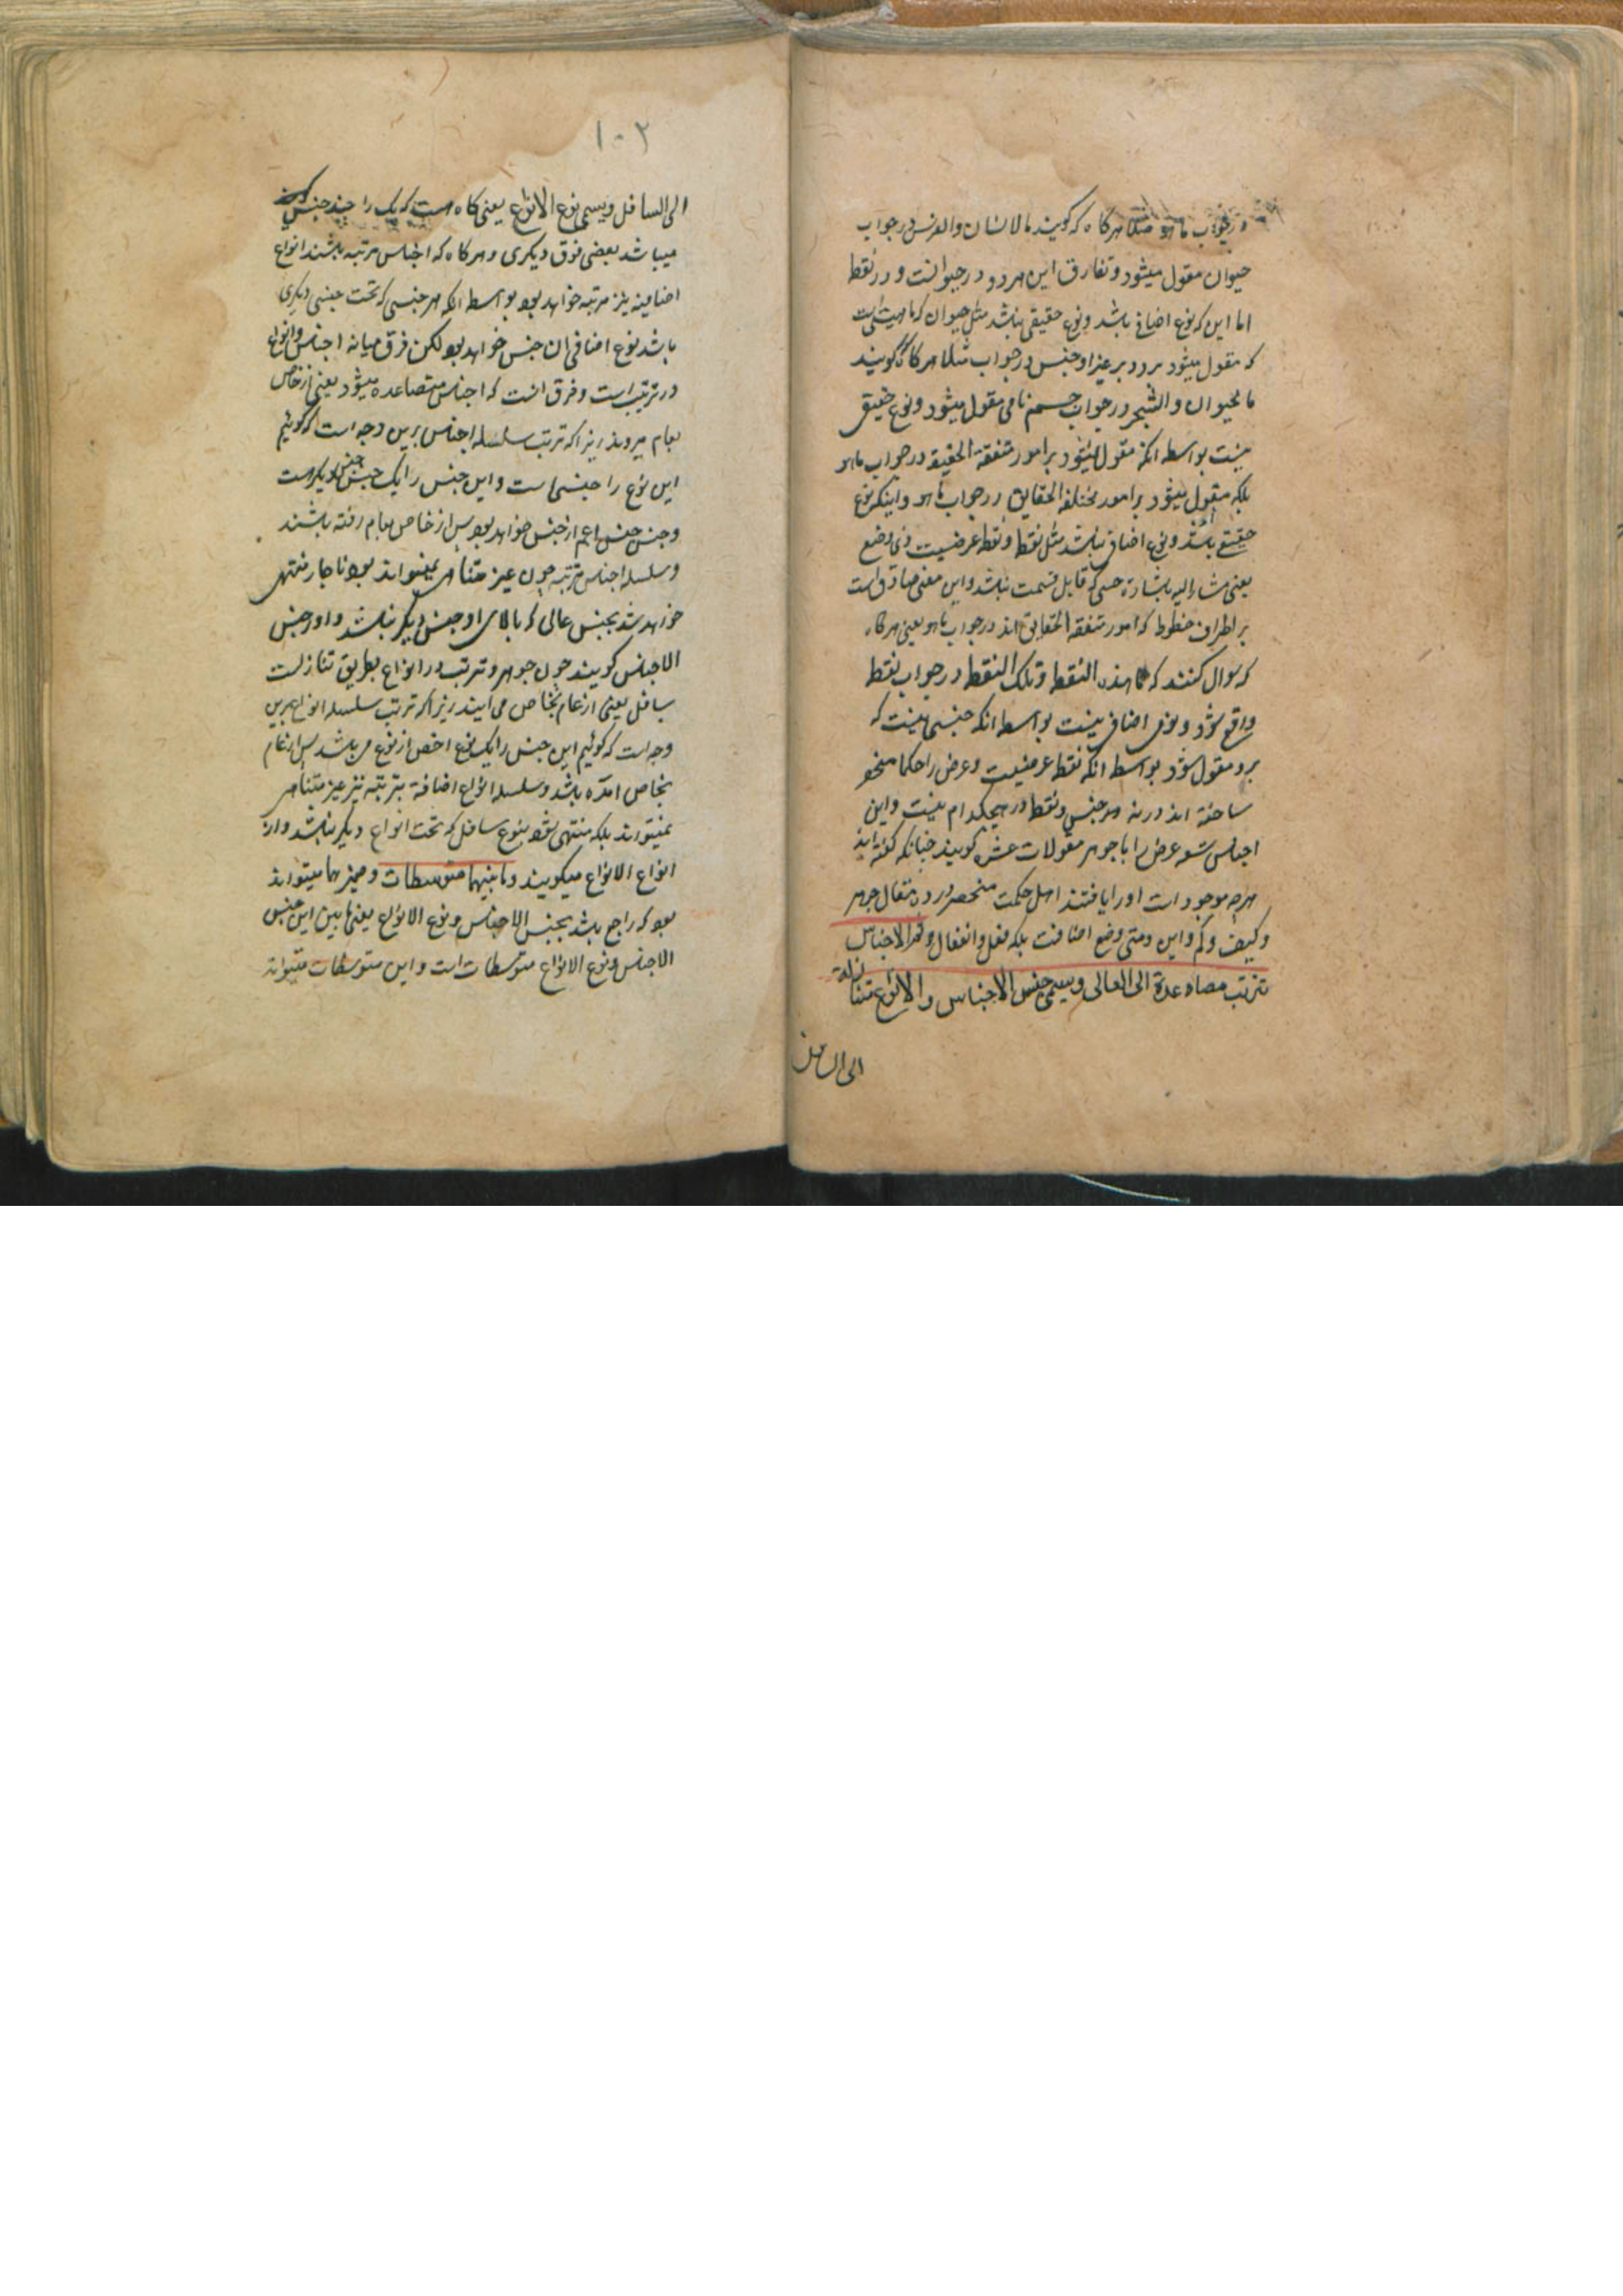 در جواب ما هو مثلا هرگاه که گویند ما الانسان والفرس در جواب
حیوان مقول میشود و تفارق این هر دو در حیوانست و در نقطه
اما این که نوع اضافی باشد و نوع حقیقی نباشد مثل حیوان که ماهیتی است
که مقول میشود برو و بر غیر او جنس در جواب مثلا هرگاه گویند
ما الحیوان والشجر در جواب جسم نامی مقول میشود و نوع حقیقی
نیست بواسطه انکه مقول نمیشود بر امور متفقة الحقیقة در جواب ما هو
بلکه مقول میشود بر امور مختلفة الحقایق در جواب ما هو و اینکه نوع
حقیقی باشد و نوع اضافی نباشد مثل نقطه و نقطه عرضیست ذی وضع
یعنی مشار الیه باشارة حسی که قابل قسمت نباشد و این معنی صادق است
بر اطراف خطوط که امور متفقة الحقایق اند در جواب ما هو یعنی هرگاه
که سوال کنند که ما هذه النقطه و تلک النقطه در جواب نقطه
واقع شود و نوع اضافی نیست بواسطه انکه جنسی نیست که
برو مقول شود بواسطه انکه نقطه عرضیست و عرض را حکما منحصر
ساخته اند در نه جنس و نقطه در هیچکدام نیست و این
اجناس تسعه عرض را با جوهر مقولات عشره گویند چنانکه گفته اند
هرچه موجود است او را یافتند اهل حکمت منحصر در ده مقال جوهر
و کیف و کم و این و متی وضع اضافت بلکه فعل و انفعال و ثم الاجناس
تترتب متصاعدة الی العالی ویسمی جنس الاجناس والانواع متنازلة
الی السافل
۱۰۲
الی السافل ویسمی نوع الانواع یعنی گاه هست که یک را چند جنس
میباشد بعضی فوق دیکری و هرگاه که اجناس مرتبه باشند انواع
اضافیه نیز مرتبه خواهد بود بواسطه انکه هر جنسی که تحت جنسی دیکری
باشد نوع اضافی ان جنس خواهد بود لکن فرق میانه اجناس و انواع
در ترتیب است و فرق انست که اجناس متصاعده میشود یعنی از خاص
بعام میروند زیرا که ترتب سلسله اجناس برین وجه است که گوئیم
این نوع را جنسی است و این جنس را یک جنس دیکر است
و جنس جنس اعم از جنس خواهد بود پس از خاص بعام رفته باشند
و سلسله اجناس مرتبه چون غیر متناهی نمیتواند بود ناچار منتهی
خواهد شد بجنس عالی که بالای او جنس دیکر نباشد و او را جنس
الاجناس گویند چون جوهر و ترتب در انواع بطریق تنازلست
بسافل یعنی از عام بخاص می ایند زیرا که ترتب سلسله انواع برین
وجه است که گوئیم این جنس را یک نوع اخص از نوع می باشد پس از عام
بخاص امده باشد و سلسله انواع اضافة مترتبه نیز غیر متناهی
نمیتواند بلکه منتهی شود بنوع سافل که تحت انواع دیکر نباشد و او را
انواع الانواع میگویند و ما بینهما متوسطات و ضمیر هما میتواند
بود که راجع باشد بجنس الاجناس و نوع الانواع یعنی ما بین این جنس
الاجناس و نوع الانواع متوسطات است و این متوسطات میتواند